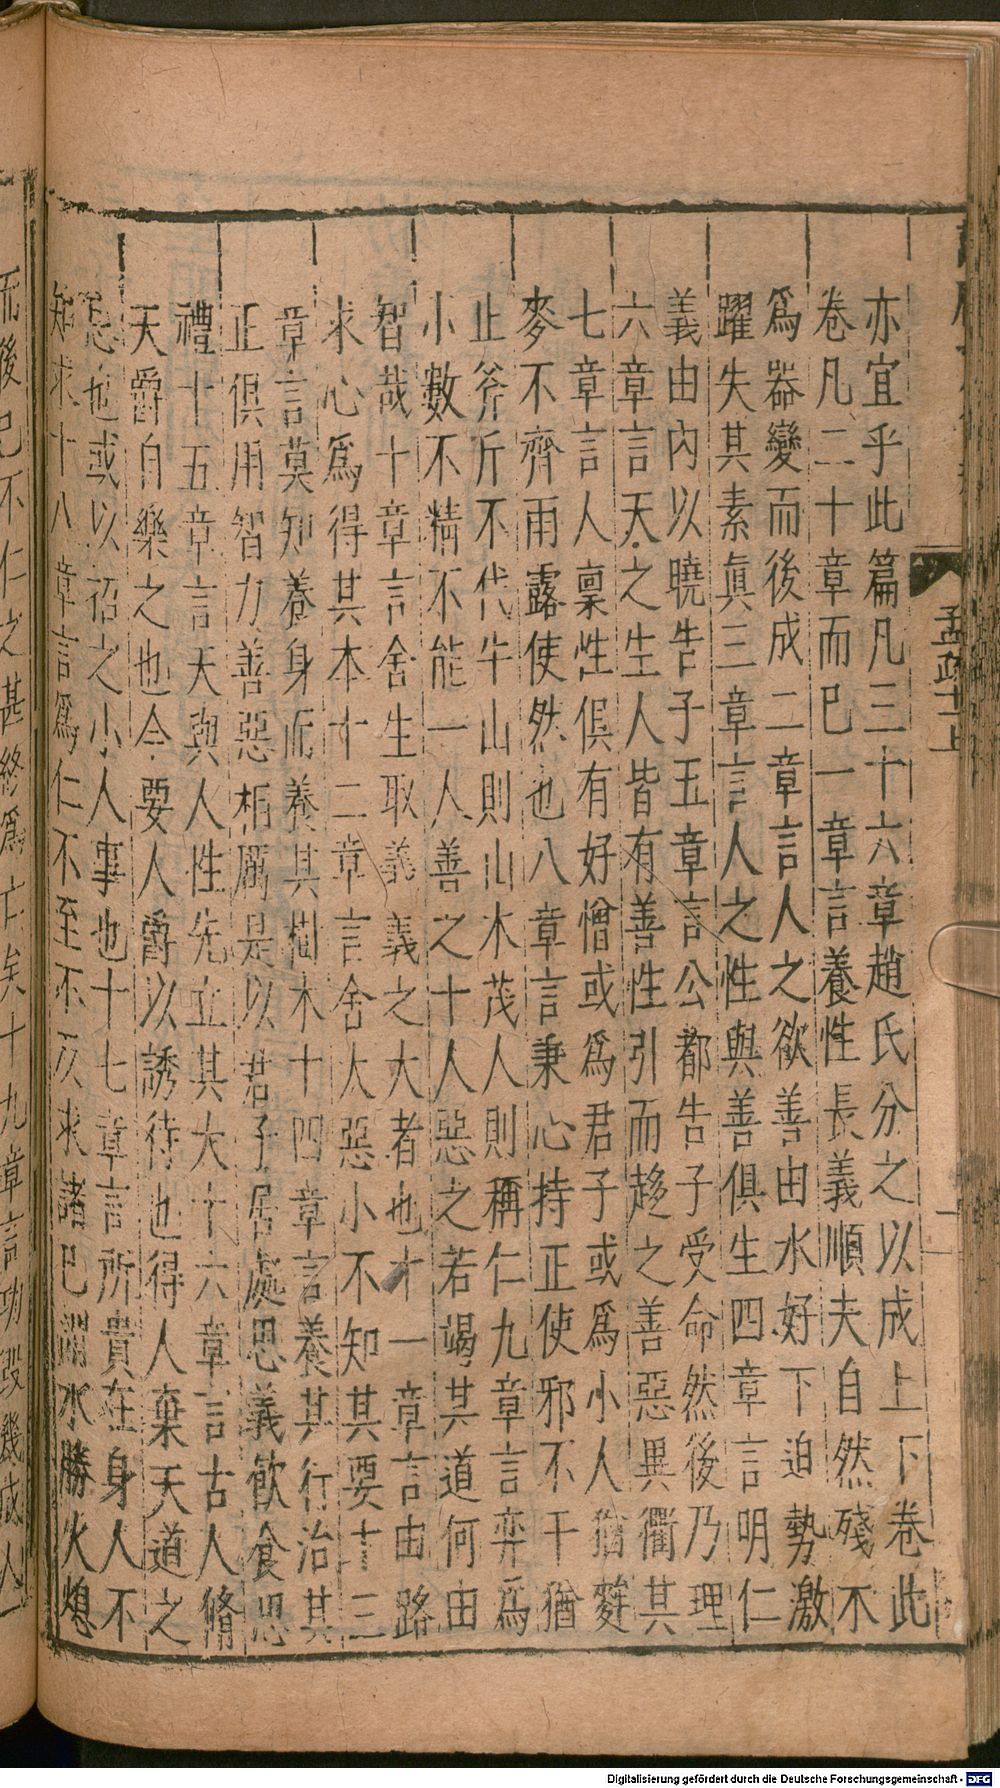 孟疏十一上
亦宜乎此篇凡三十六章趙氏分之以成上下卷此
卷凡二十章而已一章言養性長義順夫自然殘不
爲器變而後成二章言人之欲善由水好下迫勢激
躍失其素眞三章言人之性與善俱生四章言明仁
義由內以曉告子五章言公都告子受命然後乃理
六章言天之生人皆有善性引而趍之善惡異衢其
七章言人稟性俱有好憎或爲君子或爲小人猶麰
麥不齊雨露使然也八章言秉心持正使邪不干猶
止斧斤不伐牛山則山木茂人則稱仁九章言弈爲
小數不精不能一人善之十人惡之若竭其道何由
智哉十章言舍生取義義之大者也十一章言由路
求心爲得其本十二章言舍大惡小不知其要十三
章言莫知養身而養其樹木十四章言養其行治其
正俱用智力善惡相厲是以君子居處思義飲食思
禮十五章言天與人性先立其大十六章言古人脩
天爵自樂之也今要人爵以誘待也得人棄天道之
忌也或以招之小人事也十七章言所貴在身人不
知求十八章言爲仁不至不反求諸己謂水勝火熄
而後已不仁之甚終爲亡矣十九章言功毀幾成人
Digitalisierung gefördert durch die Deutsche Forschungsgemeinschaft - DFG